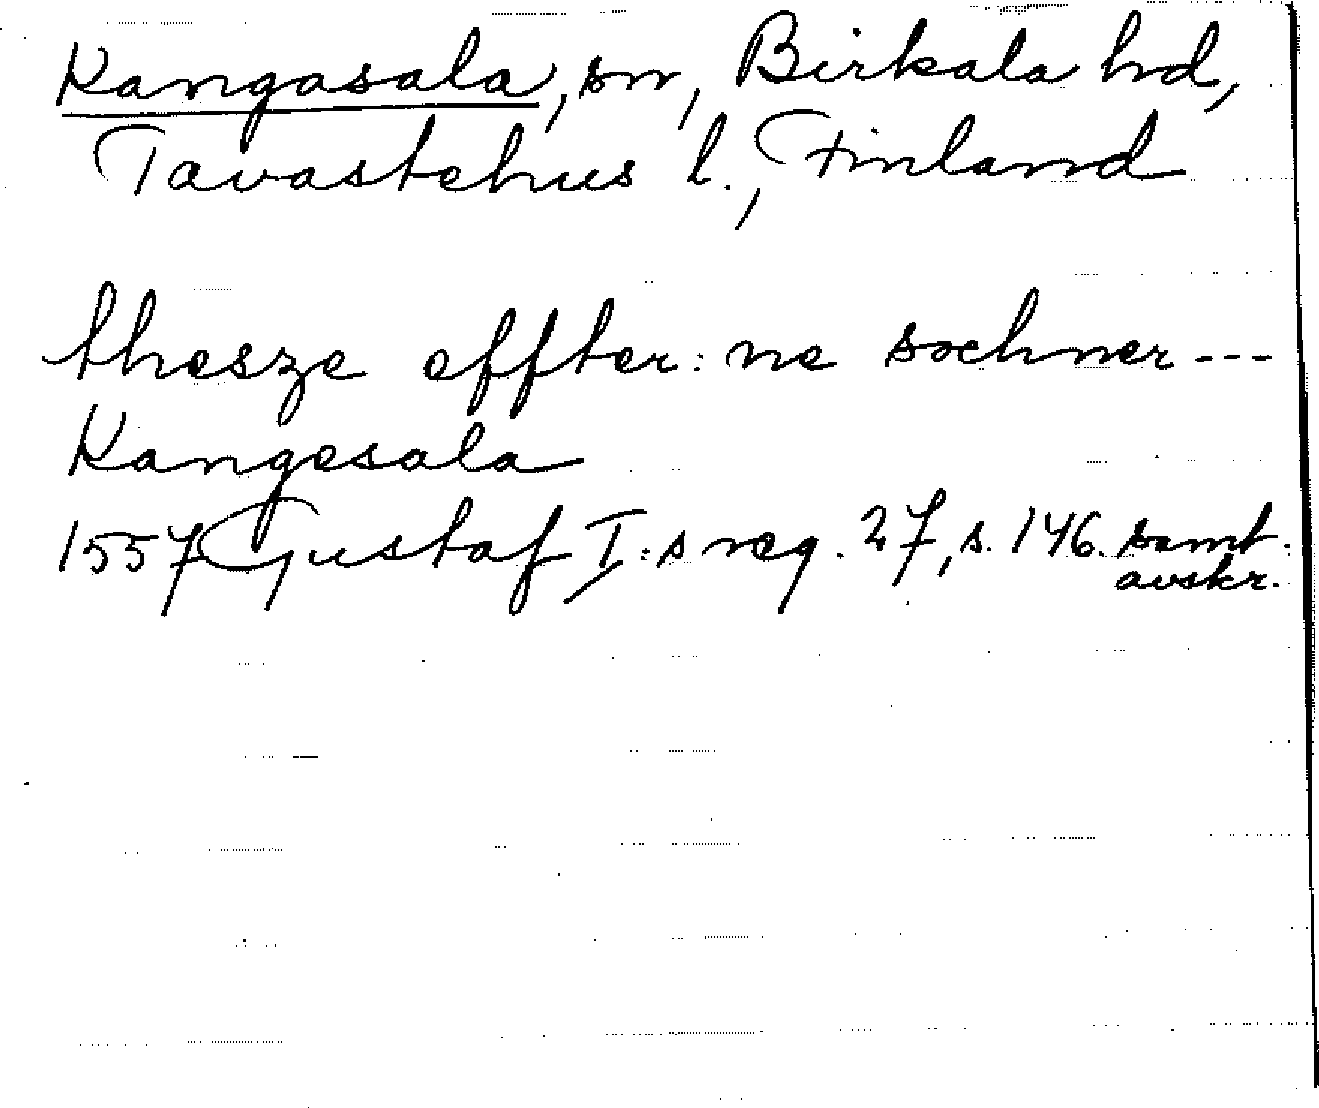 Kangasala, sn, Birkala hd,
Tavastehus l., Finland
thesze effter:ne sochner ---
Kangesala
1557 Gustaf I:s reg. 27, s. 146. samt.
avskr.